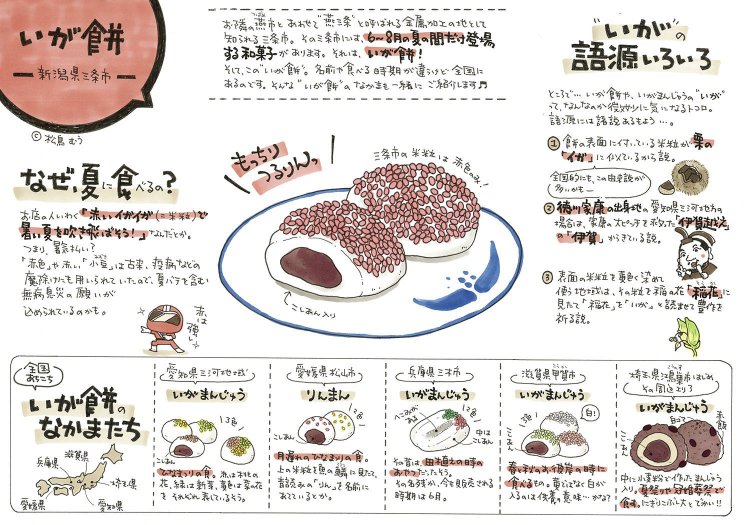 いが餅
新潟県三条市
© 松鳥むう
お隣の燕市とあわせて"燕三条"と呼ばれる金属加工の地として
知られる三条市。その三条市には、6〜8月の夏の間だけ登場
する和菓子があります。それは、いが餅!
そして、この"いが餅"。名前や食べる時期が違うけど全国に
あるのです。そんな"いが餅"のなかまも一緒にご紹介します♬
"いが"の
語源いろいろ
ところで…いが餅や、いがまんじゅうの"いが"
って、なんなのか微妙に気になるトコロ。
語源には諸説あるもよう…。
① 餅の表面に付いている米粒が栗の
「イガ」に似ているから説。
全国的にも、この由来説が
多いかも―
② 徳川家康の出身地の愛知県三河地方の
場合は、家康の大ピンチを救った「伊賀越え」
の「伊賀」がきている説。
③ 表面の米粒を黄色く染めて
使う地域は、その粒を稲の花「稲花」に
見たて「稲花」を「いが」と読ませて豊作を
祈る説。
なぜ、夏に食べるの?
お店の人いわく「赤いイガイガ(=米粒)で
暑い夏を吹き飛ばそう!」なんだとか。
つまり、暑気払い?
「赤色」や赤い「小豆」は古来、疫病などの
魔除けにも用いられていたので、夏バテを含む
無病息災の願いが
込められているのかも。
赤は
強い!
もっちり
つるりんっ
三条市の米粒は赤色のみ!
こしあん入り
全国
あちこち
いが餅の
なかまたち
兵庫県
滋賀県
埼玉県
愛媛県
愛知県
愛知県三河地域
いがまんじゅう
3色
こしあん
ひなまつりの食。赤は桃の
花、緑は新芽、黄色は菜の花
をそれぞれ表しているそう。
愛媛県松山市
りんまん
3色
こしあん
月遅れのひなまつりの食。
上の米粒を魚の鱗に見たて、
音読みの「りん」を名前に
あてているとか。
兵庫県三木市
いがまんじゅう
へこみが
ある
2色
中は
こしあん
その昔は、田植えの時の
おやつだったそう。
その名残か、今も販売される
時期は6月。
滋賀県甲賀市
いがまんじゅう
3色!
白!
こしあん
春に子どものお食膳の時に
食べるもの。
埼玉県鴻巣市はじめ
その周辺エリア
いがまんじゅう
赤飯
こしあん
中に小麦粉で作ったまんじゅう
入り。夏祭りや冠婚葬祭で
食す。にぎりこぶし大とでかい!!